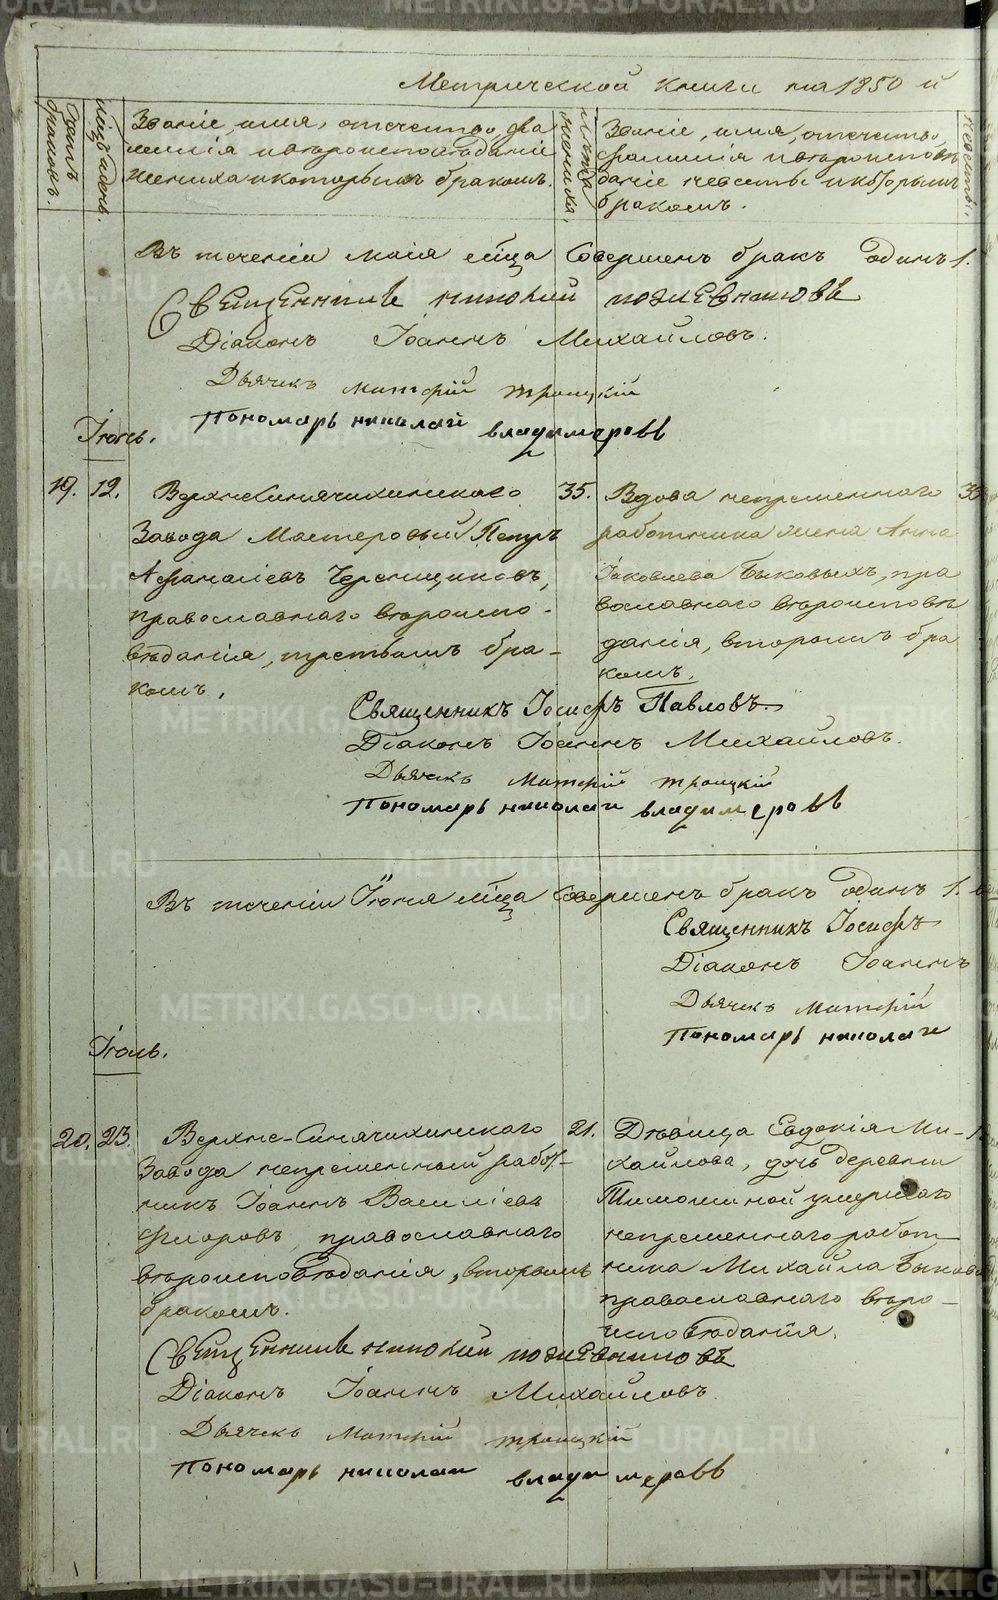 Метрической книги на 1850 й
Счетъ браковъ.
Мѣсяцъ и день.
Званіе, имя, отечество, фамилія и вѣроисповѣданіе жениха и которымъ бракомъ.
Лѣта жениха.
Званіе, имя, отечество, фамилія и вѣроисповѣданіе невесты и которымъ бракомъ.
невесты.
Въ теченіи маія мѣца Совершенъ бракъ одинъ 1.
Священникъ
Діаконъ Іоаннъ Михайловъ.
Дьячекъ Матфій Троицкій
Пономарь николай владимеровъ
Іюнь.
19. 12.
Верхнесинячихинскаго
Завода Мастеровый Петръ
Афанасіевъ Черемщиковъ,
православнаго вѣроиспо-
вѣданія, третьимъ бра-
комъ,
35.
Вдова непременнаго
работника жена Анна
Іаковлева Быковыхъ, пра
вославнаго вѣроисповѣ
данія, вторымъ бра
комъ.
Священникъ Іосифъ Павловъ
Діаконъ Іоаннъ Михайловъ.
Дьячекъ Матфій Троицкій
Пономарь николаи владимеровъ
Въ теченіи Іюня мѣца Совершенъ бракъ одинъ 1.
Священникъ Іосифъ
Діаконъ Іоаннъ
Дьячекъ Матфій
Пономарь николаи
Іюль.
20. 23.
Верхне-Синячихинскаго
Завода непременный работ-
никъ Іоаннъ Василіевъ
Фларовъ, православнаго
вѣроисповѣданія, вторымъ
бракомъ.
21.
Дѣвица Евдокія Ми-
хайлова, дочь деревни
Тимошиной умершаго
непременнаго работ-
ника Михайла Быкова
православнаго вѣро-
исповѣданія.
Священникъ
Діаконъ Іоаннъ Михайловъ
Дьячекъ Матфій Троицкій
Пономарь николаи владимеровъ
METRIKI.GASO-URAL.RU